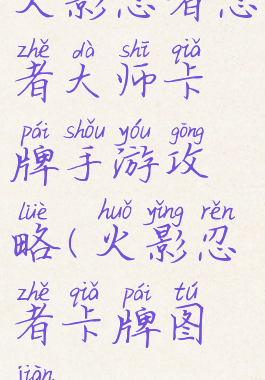 火影忍者忍
zhě dà shī qiǎ
者大师卡
pái shǒu yóu gōng
牌手游攻
lüè huǒ yǐng rěn
略(火影忍
zhě qiǎ pái tú
者卡牌图
jiàn